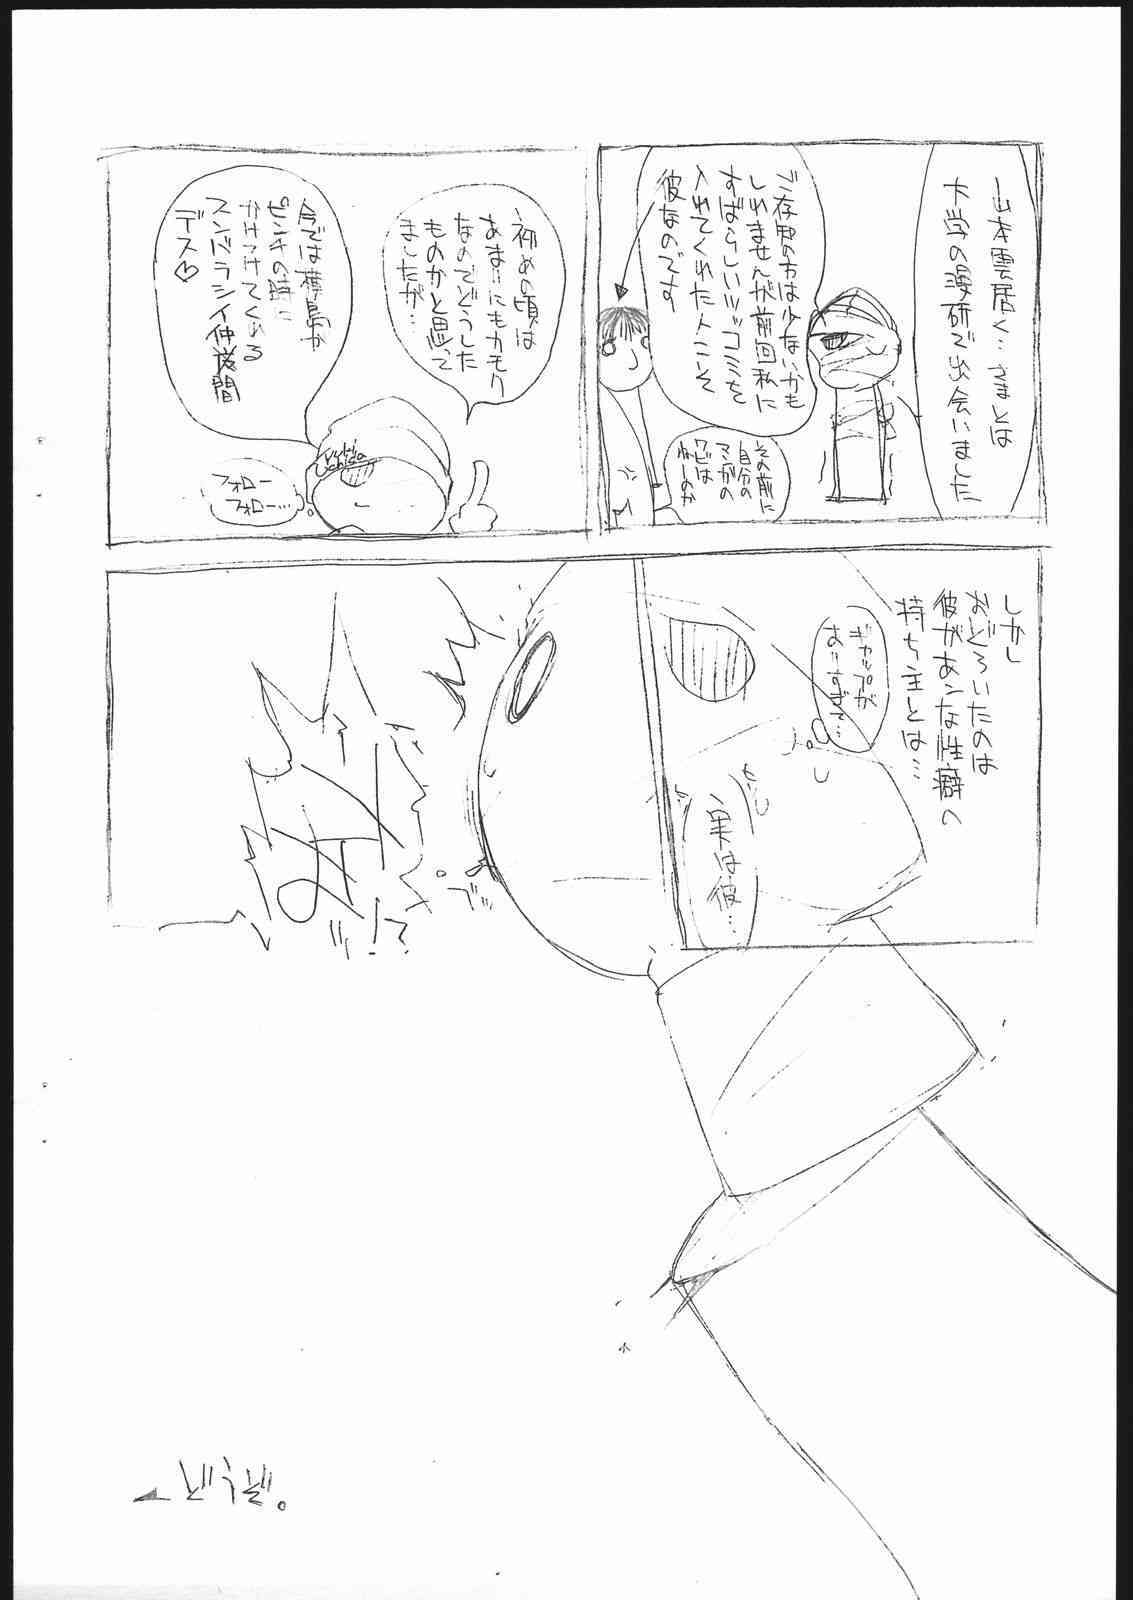 山本雲居く…さまとは
大学の漫研で出会いました
ご存知の方は少ないかも
しれませんが前回私に
すばらしいツッコミを
入れてくれたトコこそ
彼なのです
その前に
自分の
マンガの
ワビは
ねーのか
初めの頃は
あまりにもカモク
なのでどうした
ものかと思って
ましたが…
今では樺島が
ピンチの時に
かけつけてくれる
スンバラシイ仲間
デス♡
フォロー
フォロー…
しかし
おどろいたのは
彼があンな性癖の
持ち主とは…
ギャップが
ありすぎて…
実は彼…
!?
どうぞ。